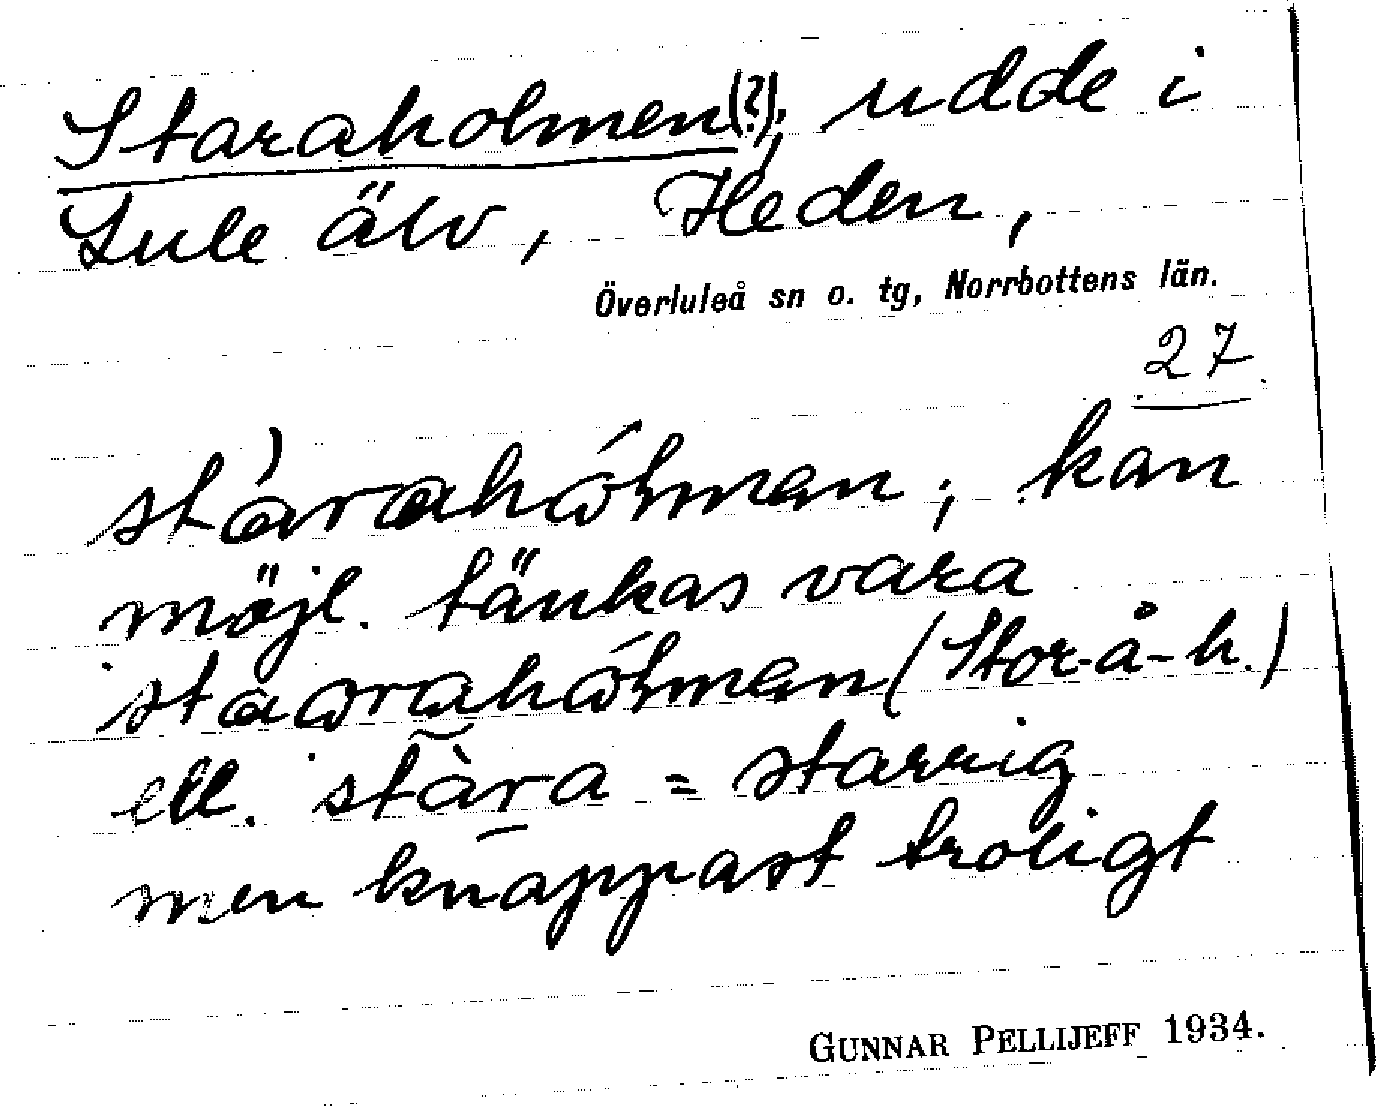 Staraholmen(?), udde i
Lule älv, Heden,
Överluleå sn o. tg, Norrbottens län.
27
stàrahólman; kan
möjl. tänkas vara
staωrahólman (Stor-å-h.)
ell. stàra = starrig
men knappast troligt
GUNNAR PELLIJEFF 1934.